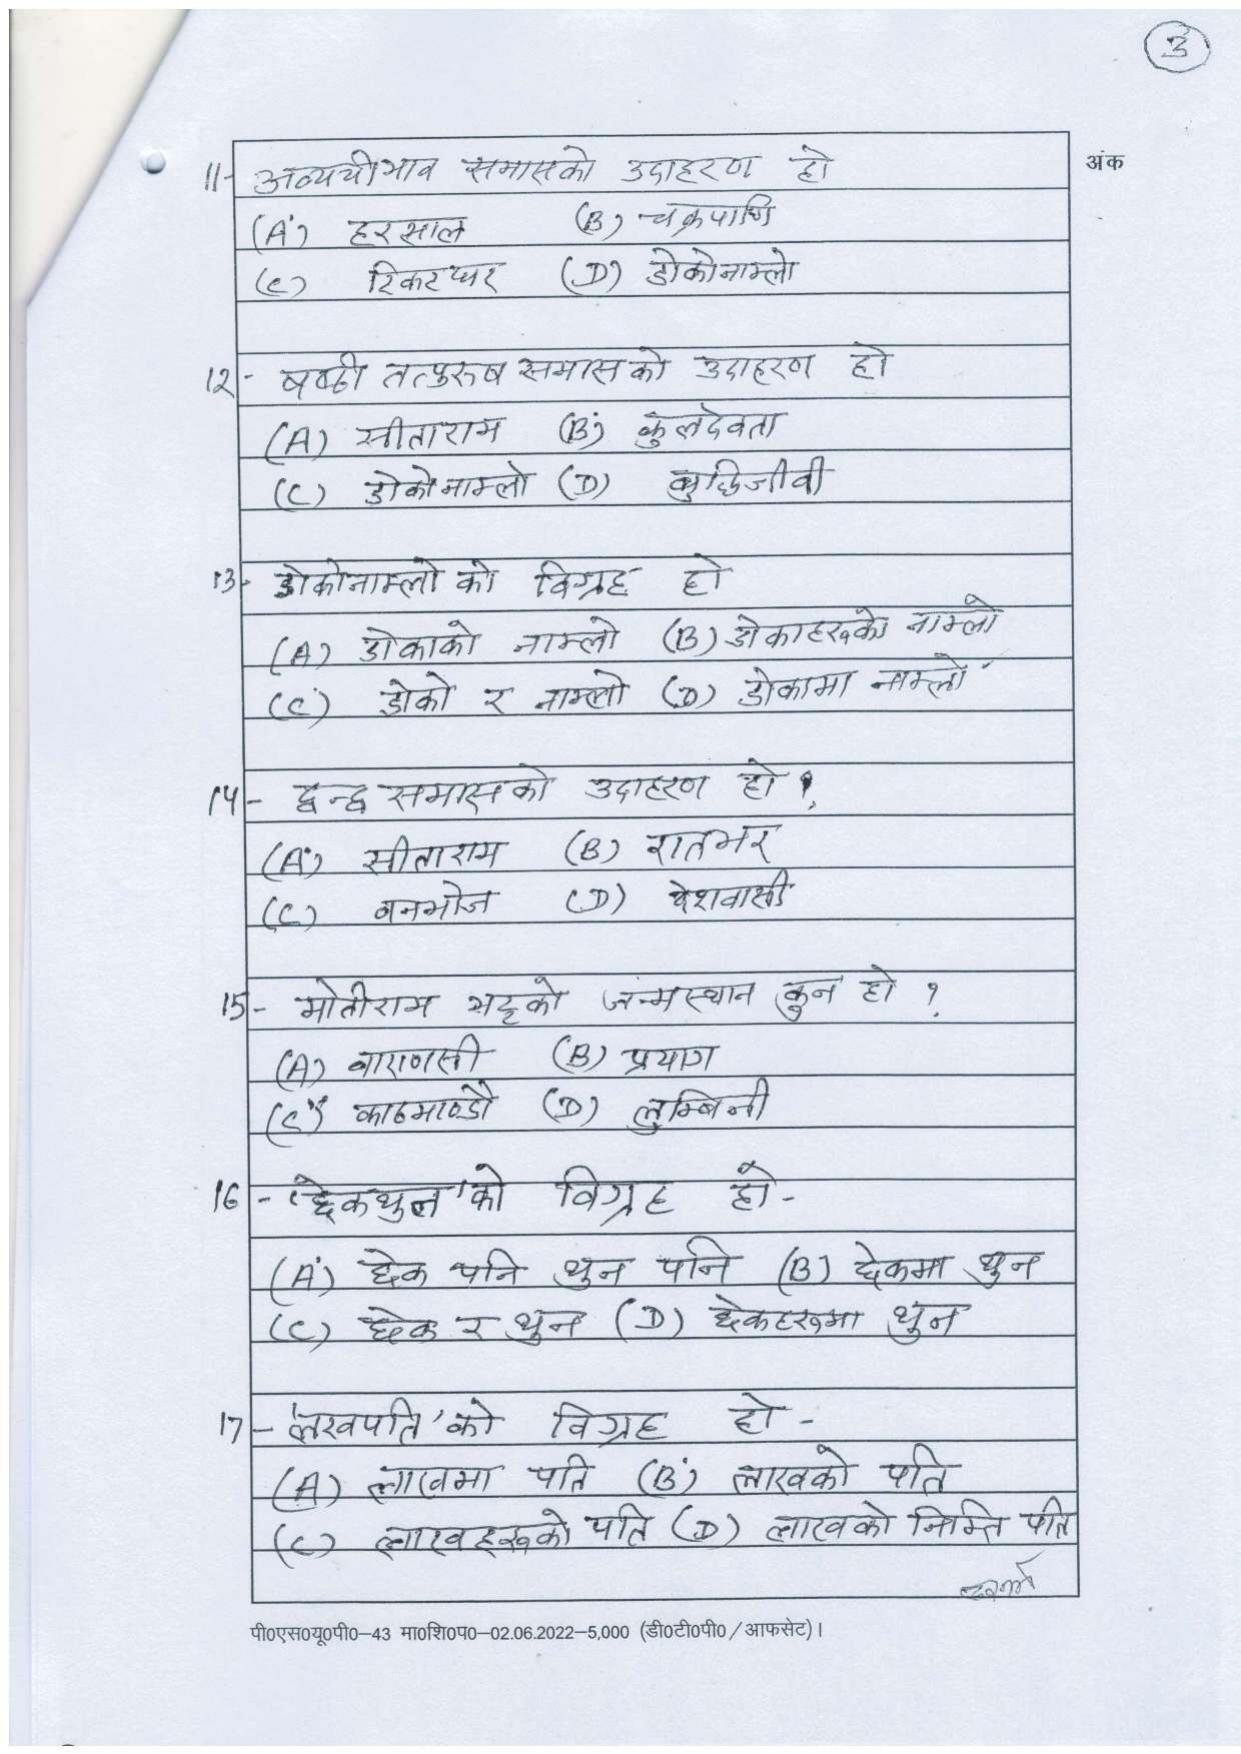 3
अंक
11- अव्ययीभाव समासको उदाहरण हो
(A) हरसाल (B) चक्रपाणि
(C) टिकटघर (D) डोकोनाम्लो
12- षष्ठी तत्पुरुष समासको उदाहरण हो
(A) सीताराम (B) कुलदेवता
(C) डोकोनाम्लो (D) बुद्धिजीवी
13- डोकोनाम्लो को विग्रह हो
(A) डोकाको नाम्लो (B) डोकाहरुको नाम्लो
(C) डोको र नाम्लो (D) डोकामा नाम्लो
14- द्वन्द्व समासको उदाहरण हो ?
(A) सीताराम (B) रातभर
(C) वनभोज (D) देशवासी
15- मोतीराम भट्टको जन्मस्थान कुन हो ?
(A) वाराणसी (B) प्रयाग
(C) काठमाण्डौ (D) लुम्बिनी
16- 'छेकथुन' को विग्रह हो-
(A) छेक पनि थुन पनि (B) छेकमा थुन
(C) छेक र थुन (D) छेकहरुमा थुन
17- 'लखपति' को विग्रह हो-
(A) लाखमा पति (B) लाखको पति
(C) लाखहरुको पति (D) लाखको निम्ति पति
पी0एस0यू0पी0–43 मा0शि0प0–02.06.2022–5,000 (डी0टी0पी0/आफसेट)।